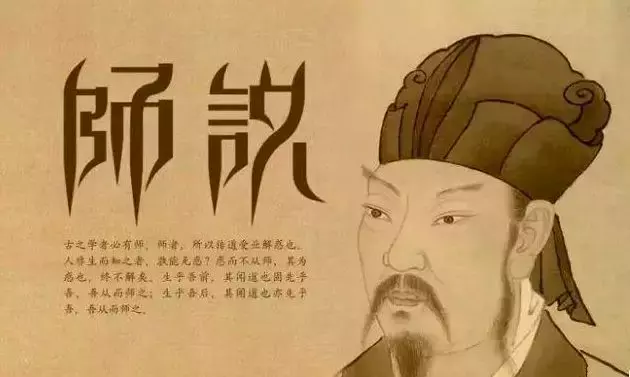 师説
古之学者必有师，师者，所以传道受业解惑也。
人非生而知之者，孰能无惑？惑而不从师，其为
惑也，终不解矣。生乎吾前，其闻道也固先乎
吾，吾从而师之；生乎吾后，其闻道也亦先乎
吾，吾从而师之。